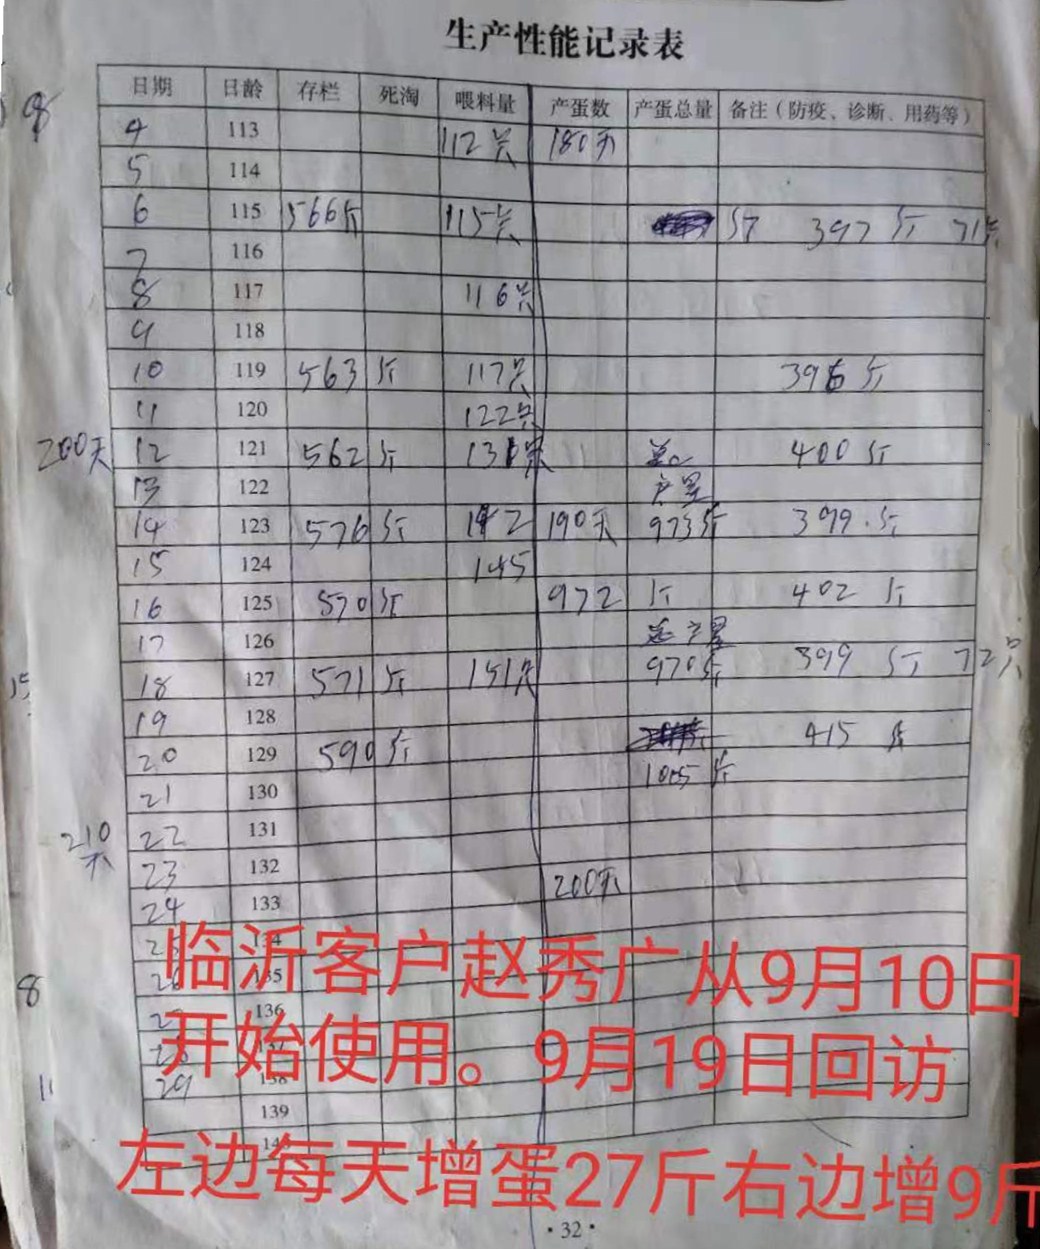 生产性能记录表
日期 日龄 存栏 死淘 喂料量 产蛋数 产蛋总量 备注（防疫、诊断、用药等）
4 113 112只 180天
5 114
6 115 566斤 115只 斤 397斤 71只
7 116
8 117 116只
9 118
10 119 563斤 117只 396斤
11 120 122只
200天 12 121 562斤 400斤
13 122 总产量
14 123 576斤 190天 973斤 399斤
15 124 145
16 125 570斤 972斤 402斤
17 126 总产量
18 127 571斤 151只 970斤 399斤 72只
19 128
20 129 590斤 415斤
21 130 1005斤
210天 22 131
23 132 200天
24 133
25 134
26 135
27 136
28 137
29 138
139
临沂客户赵秀广从9月10日
开始使用。9月19日回访
左边每天增蛋27斤右边增9斤
·32·